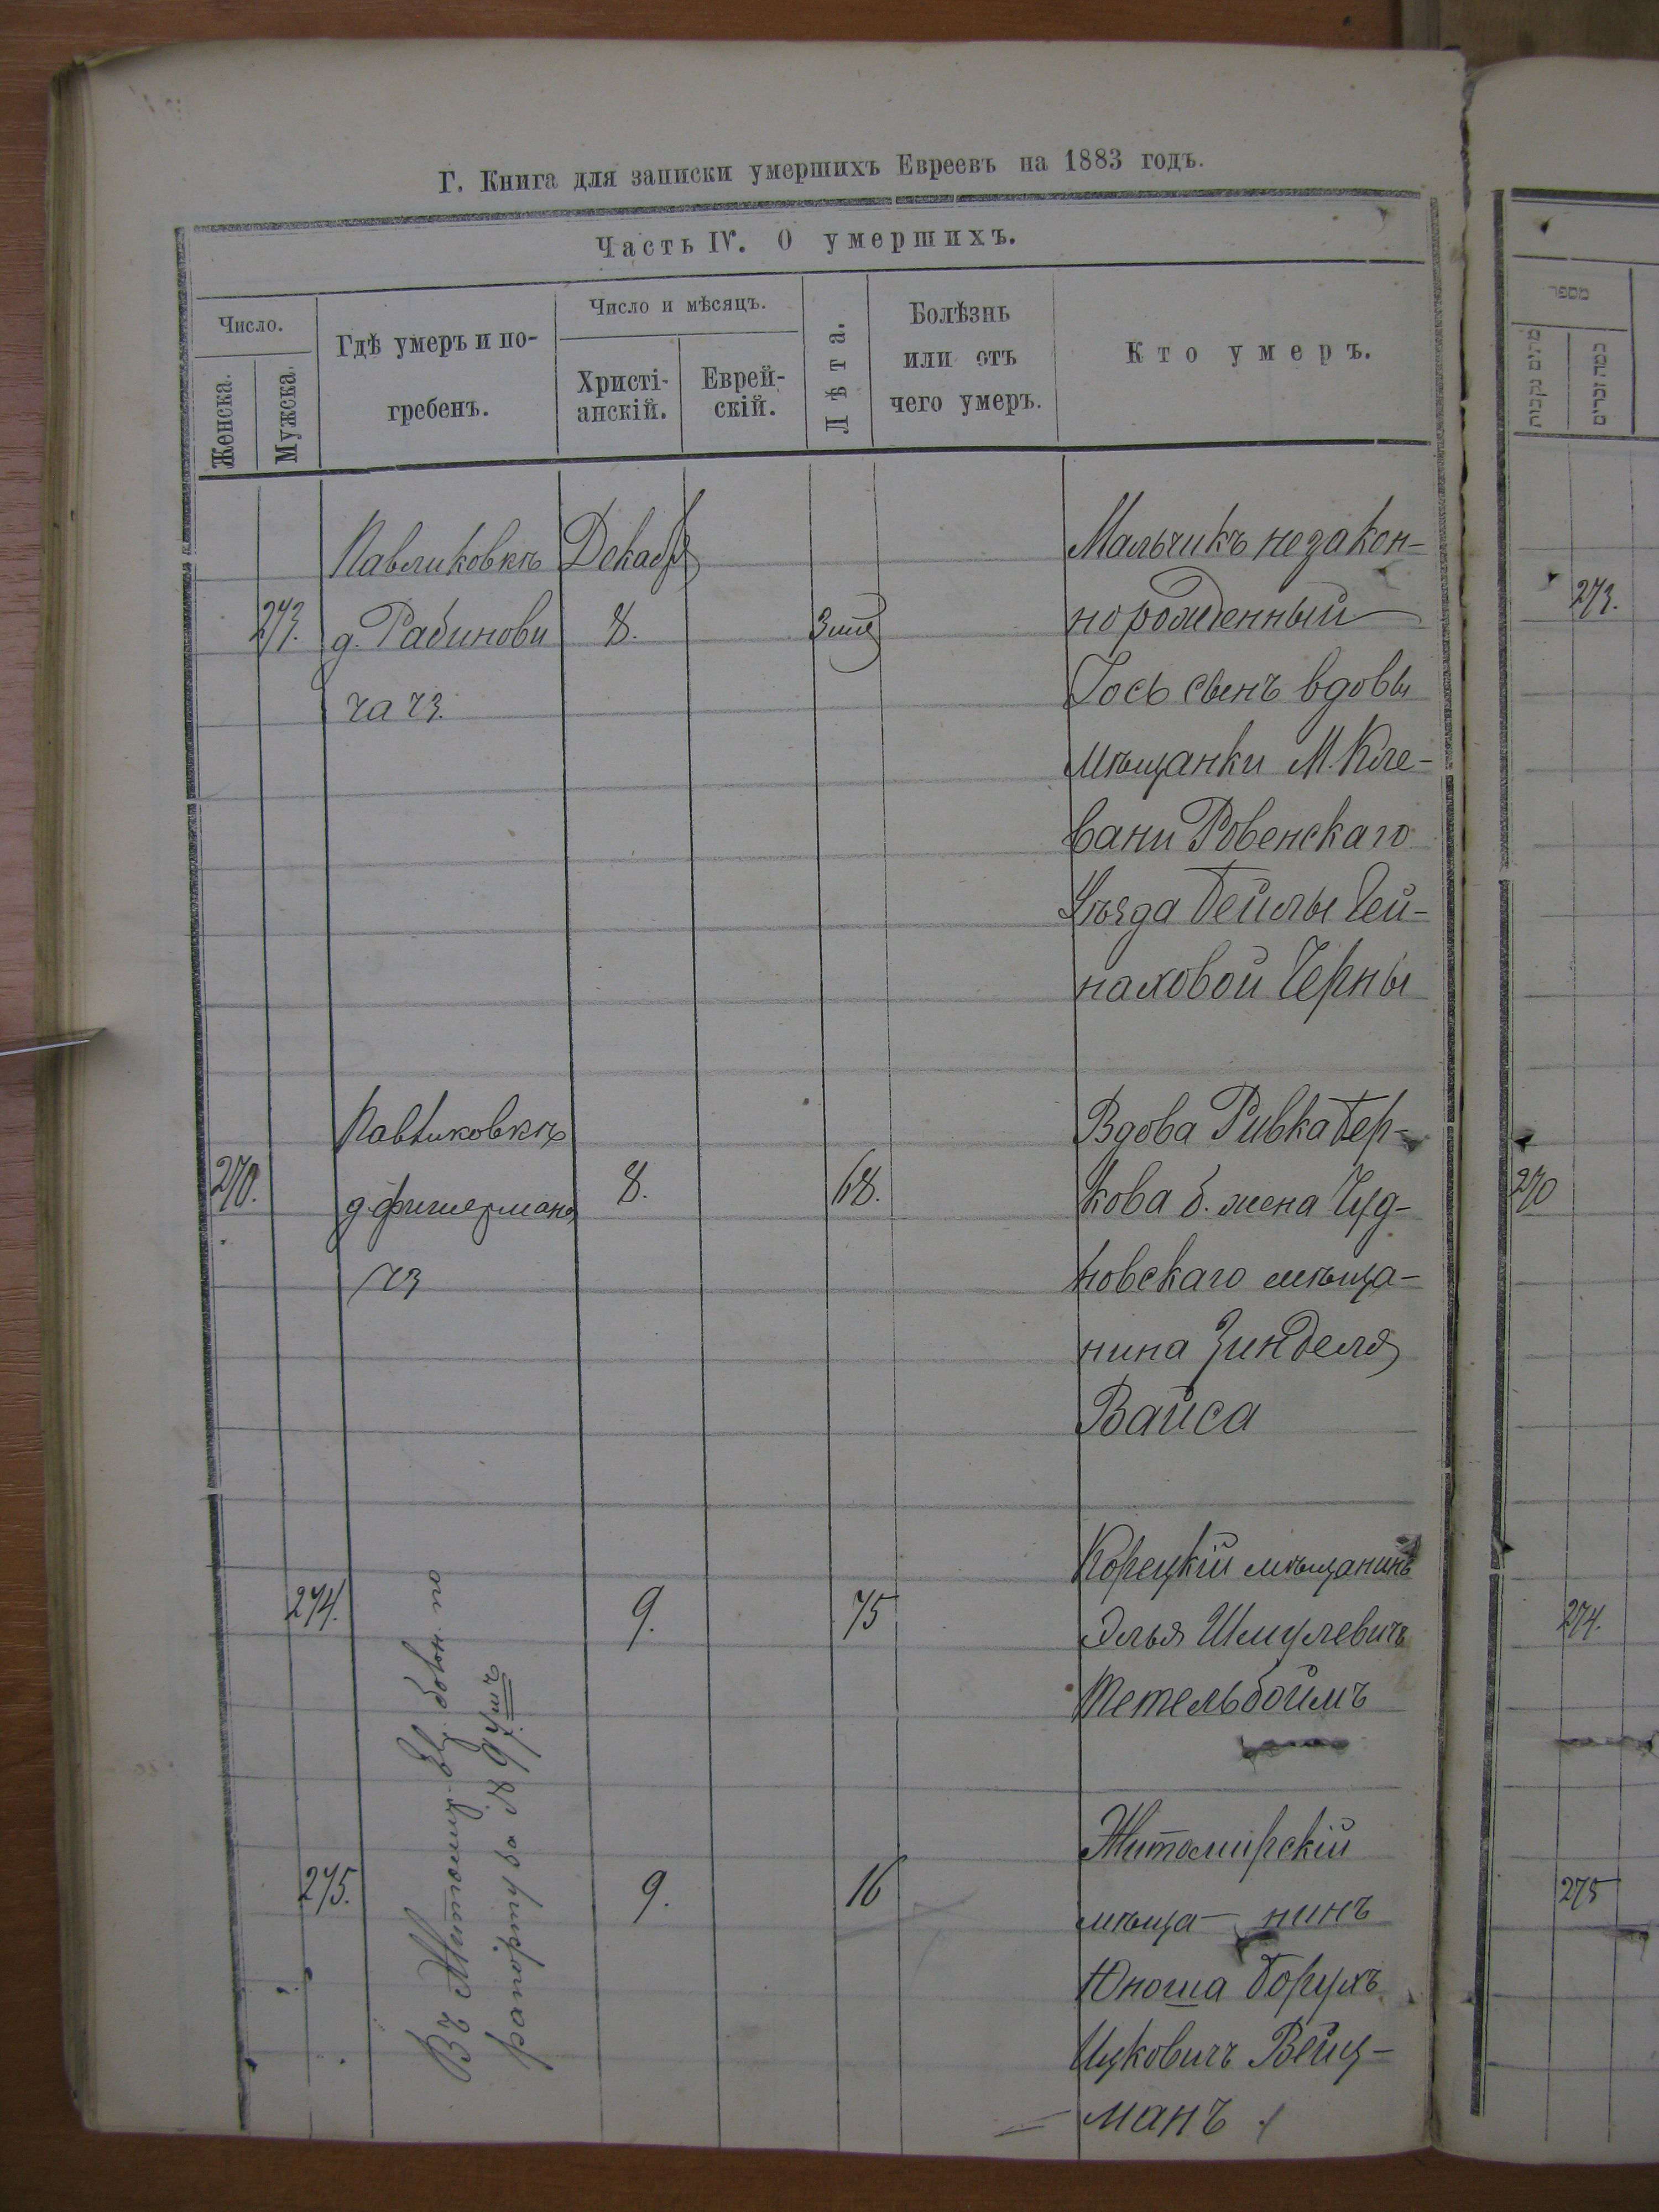 Г. Книга для записки умершихъ Евреевъ на 1883 годъ.
Часть IV. О умершихъ.
Число.
Женска.
Мужска.
Гдѣ умеръ и по-
гребенъ.
Число и мѣсяцъ.
Христі-
анскій.
Еврей-
скій.
Лѣта.
Болѣзнь
или отъ
чего умеръ.
Кто умеръ.
273.
Павликовкѣ
д. Рабинови
ча
Декабря
8.
Мальчикъ незакон-
но рожденный
Іось сынъ вдовы
мѣщанки М. Кле-
вани Ровенскаго
Уѣзда Бейлы Гей-
наховой Черны
270.
Павликовкѣ
д. Фишермана
8.
68.
Вдова Ривка Бер-
кова б. жена Чуд-
новскаго мѣща-
нина Зинделя
Вайса
274.
9.
75
Корецкій мѣщанинъ
Элья Шмулевичъ
Тетельбоймъ
275.
9.
16
Житомирскій
мѣща- нинъ
Юноша Борухъ
Ицковичъ Вейц-
манъ
Въ Житомир. Евр. бол.
273.
270
274.
275